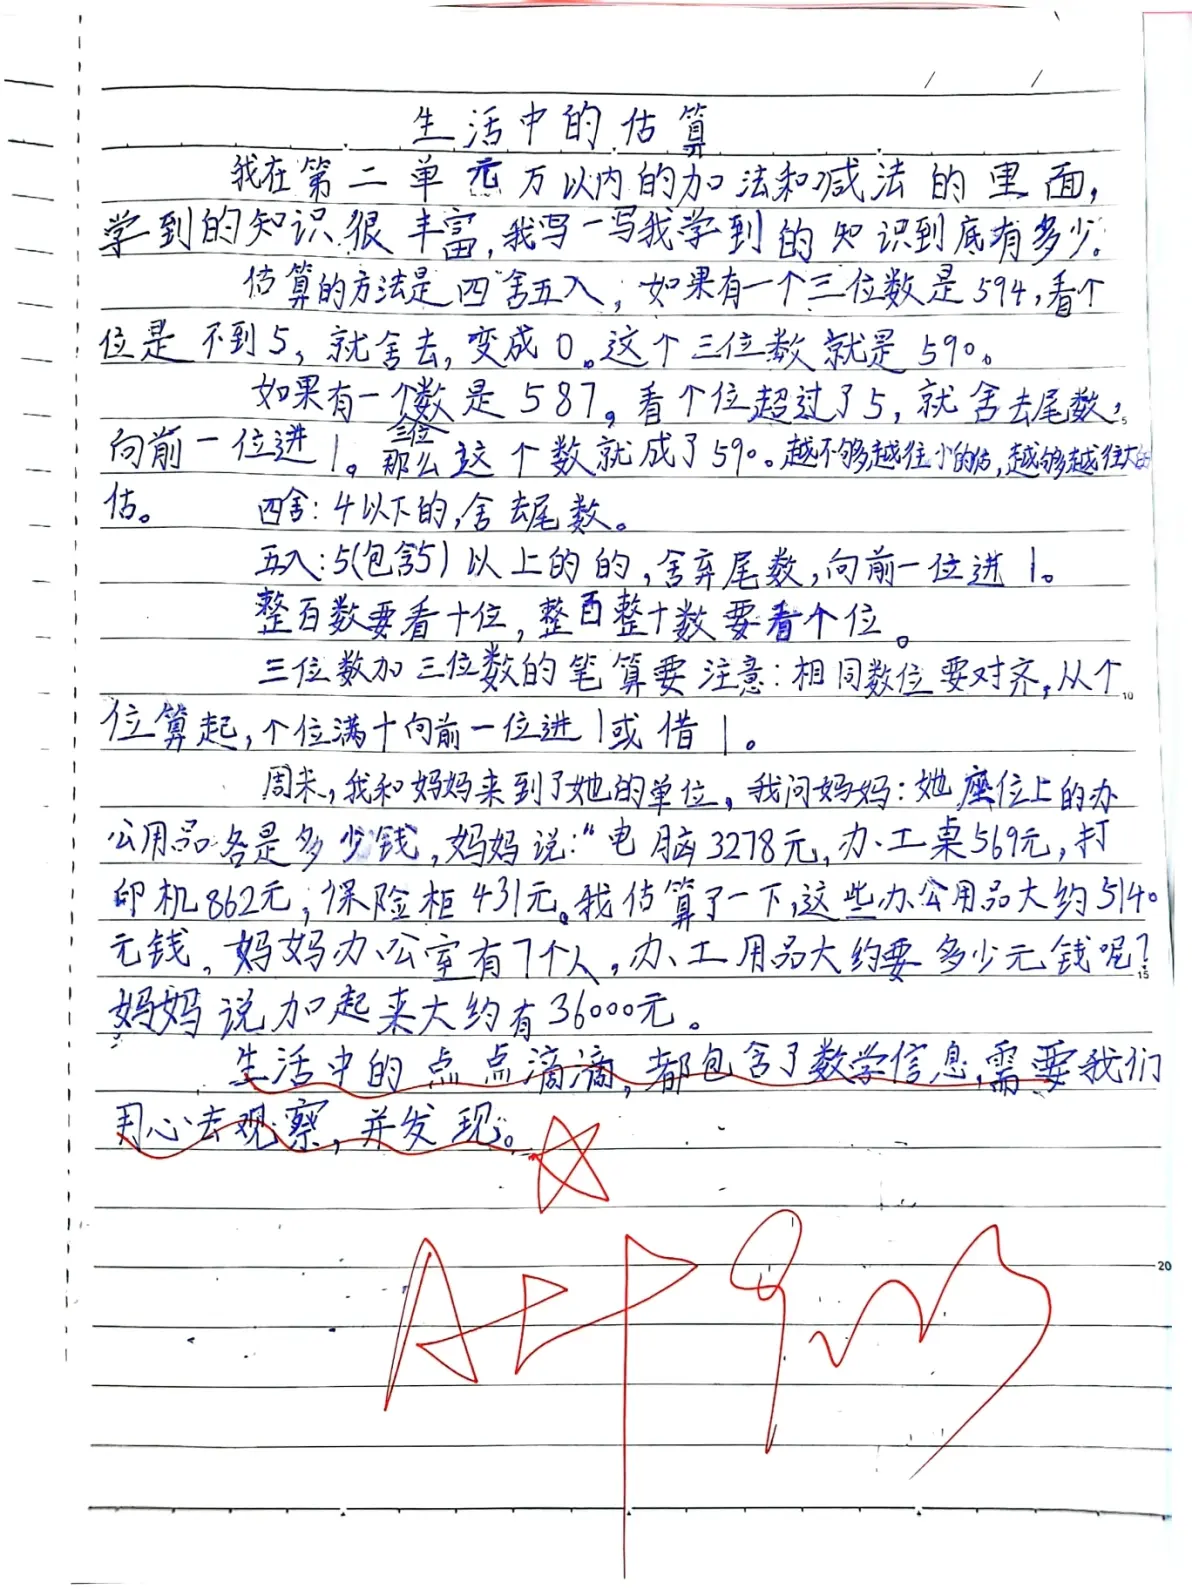 生活中的估算
我在第二单元万以内的加法和减法的里面，
学到的知识很丰富，我写一写我学到的知识到底有多少。
估算的方法是四舍五入，如果有一个三位数是594，看个
位是不到5，就舍去，变成0。这个三位数就是590。
如果有一个数是587。看个位超过了5，就舍去尾数，
5
三位
向前一位进1。那么这个数就成了590。越不够越往小的估，越够越往大的
估。 四舍：4以下的，舍去尾数。
五入：5（包含5）以上的的，舍弃尾数，向前一位进1。
整百数要看十位，整百整十数要看个位。
三位数加三位数的笔算要注意：相同数位要对齐，从个
10
位算起，个位满十向前一位进1或借1。
周末，我和妈妈来到了她的单位，我问妈妈：她座位上的办
公用品各是多少钱，妈妈说：“电脑3278元，办工桌569元，打
印机862元，保险柜431元。我估算了一下，这些办公用品大约5140
元钱，妈妈办公室有7个人，办工用品大约要多少元钱呢？
15
妈妈说加起来大约有36000元。
生活中的点点滴滴，都包含了数学信息，需要我们
用心去观察，并发现。
20